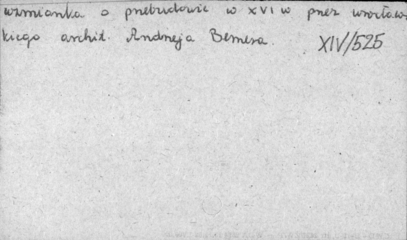 wzmianka o przebudowie w XVI w przez wrocław
kiego archit. Andrzeja Bemera.
XIV/525